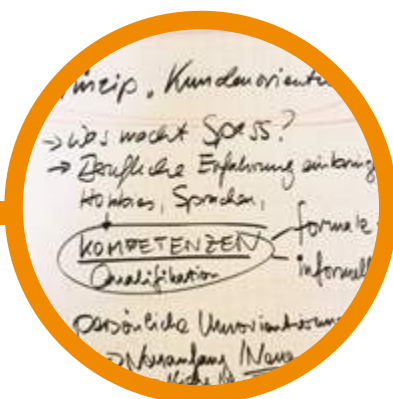 inzip, Kundenorient
→ Was macht Spass?
→ Berufliche Erfahrung einbring
Hobbies, Sprachen,
KOMPETENZEN formale
Qualifikation informell
persönliche Umorientierun
→ Neuanfang / Neue